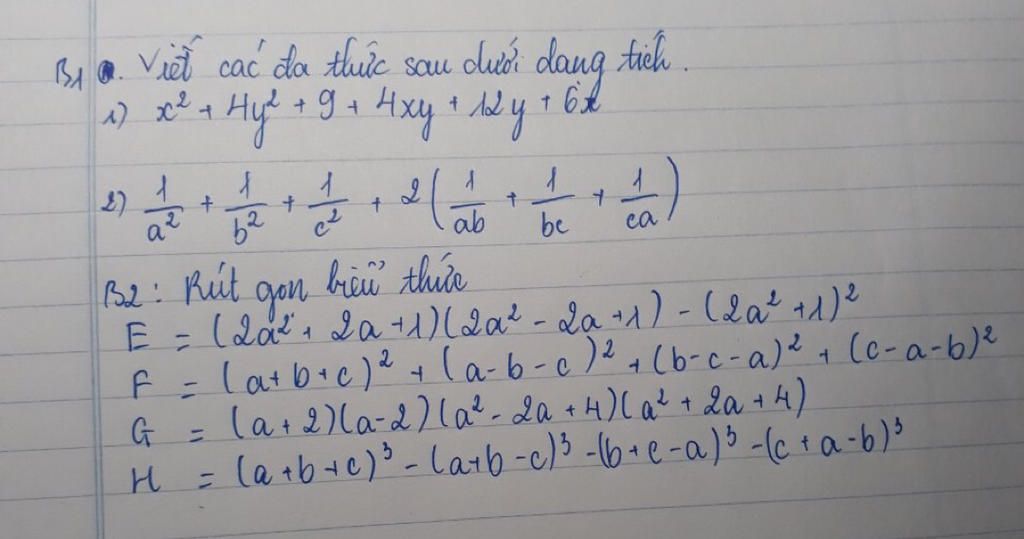 B1. Viết các đa thức sau dưới dạng tích.
1) x² + 4y² + 9 + 4xy + 12y + 6x
2) 1/a² + 1/b² + 1/c² + 2(1/ab + 1/bc + 1/ca)
B2: Rút gọn biểu thức
E = (2a² + 2a + 1)(2a² - 2a + 1) - (2a² + 1)²
F = (a + b + c)² + (a - b - c)² + (b - c - a)² + (c - a - b)²
G = (a + 2)(a - 2)(a² - 2a + 4)(a² + 2a + 4)
H = (a + b + c)³ - (a + b - c)³ - (b + c - a)³ - (c + a - b)³